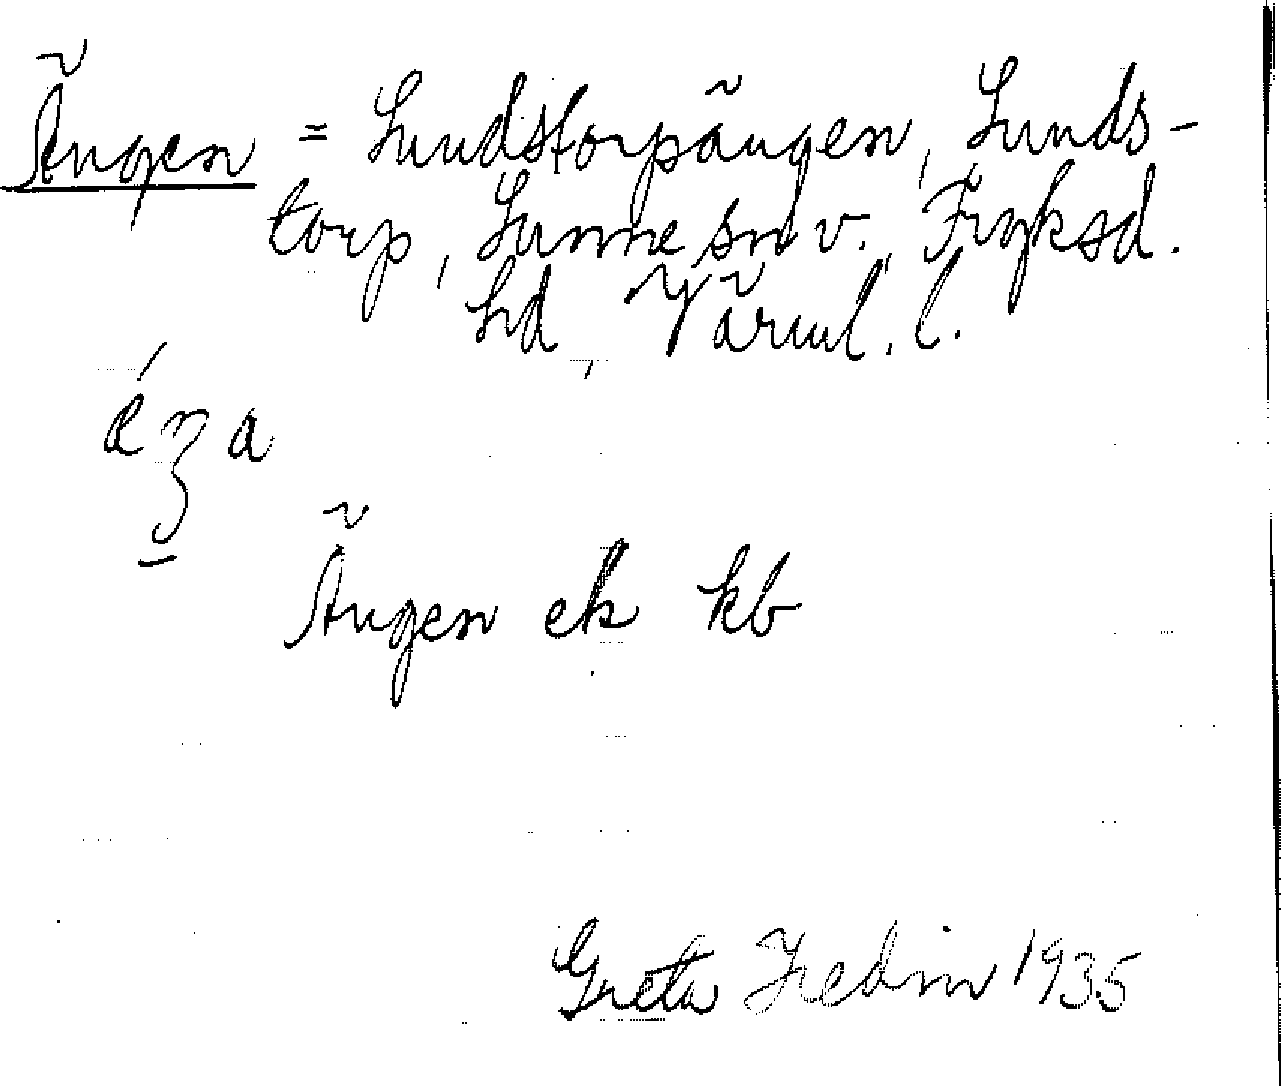 Ängen = Lundstorpängen, Lunds-
torp, Sunne sn v., Fryksd.
hd, Värml. l.
Ängen ek kb
Greta Hedin 1935